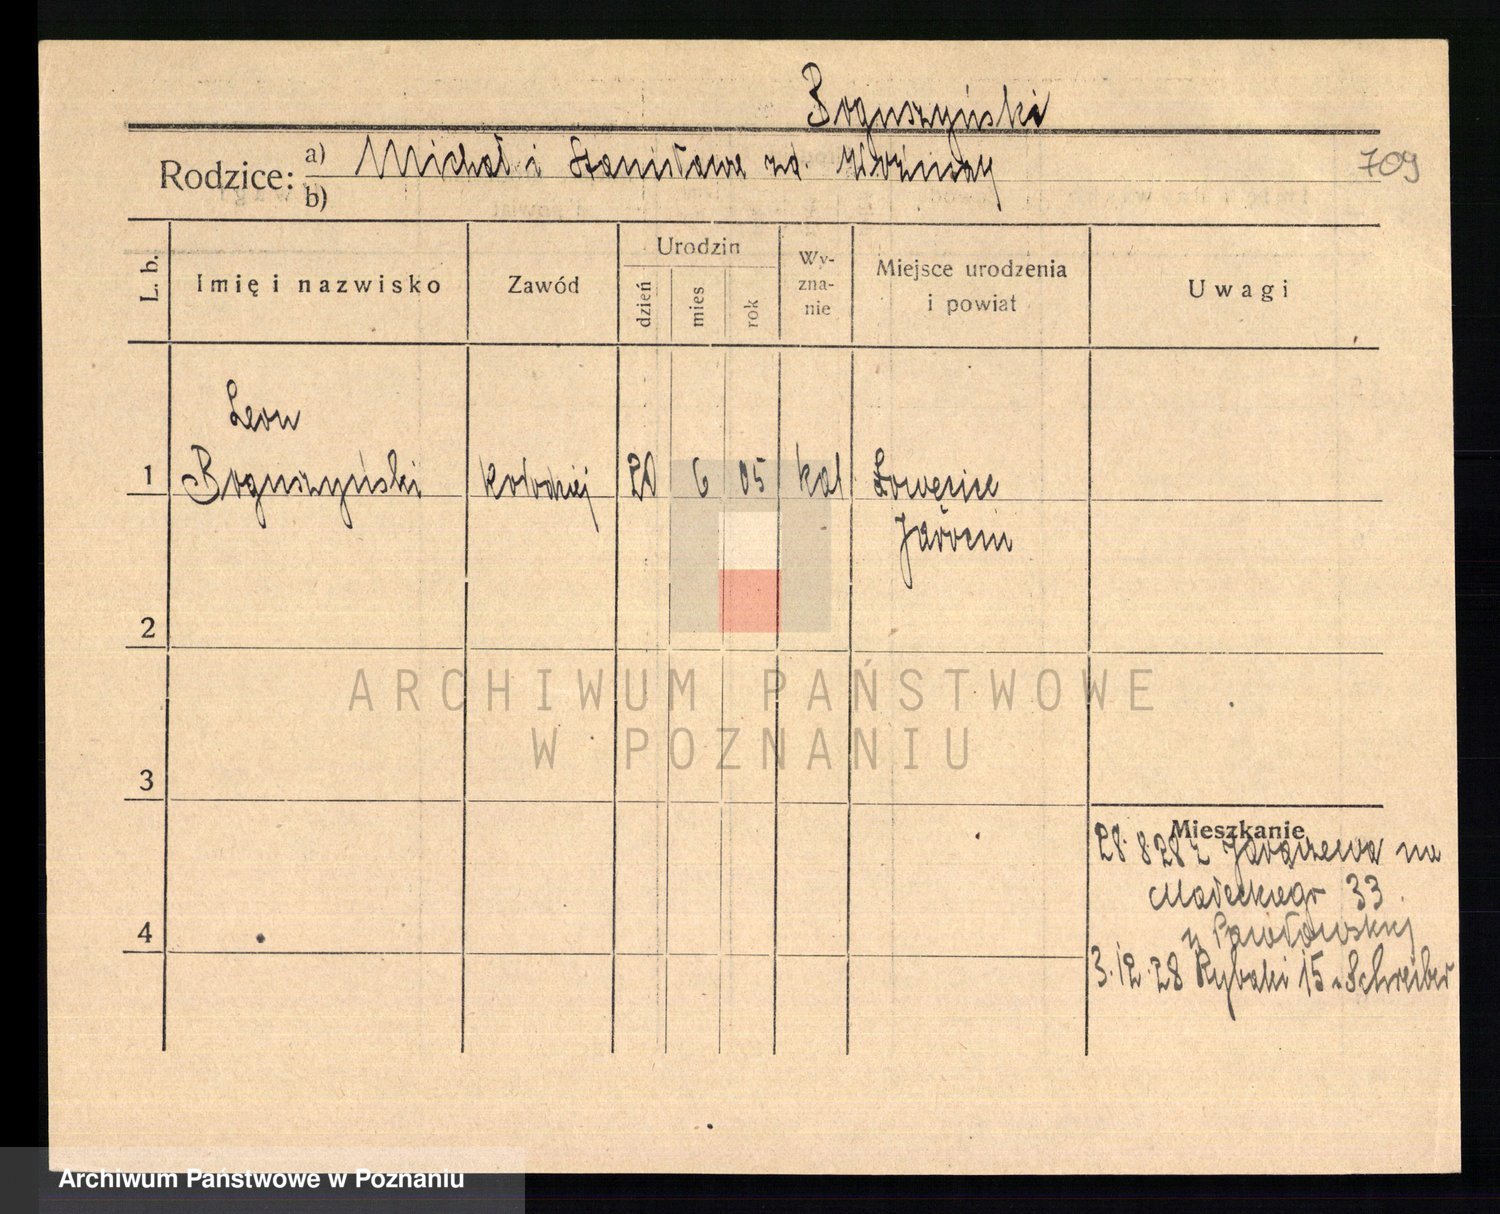 Boguszyński
Rodzice: a) Michał i Stanisława zd. Woźniak
b)
709
L. b.
Imię i nazwisko
Zawód
Urodzin
dzień
mies
rok
Wy-
zna-
nie
Miejsce urodzenia
i powiat
Uwagi
Leon
1 Boguszyński kołodziej 20 6 05 kat Łowęcice
Jarocin
2
3
4
Mieszkanie
28.8.28 z Jaraczewa na
Małeckiego 33
u Pawłowskiej
3.12.28 Rybaki 15 u Schreiber
ARCHIWUM PAŃSTWOWE
W POZNANIU
Archiwum Państwowe w Poznaniu